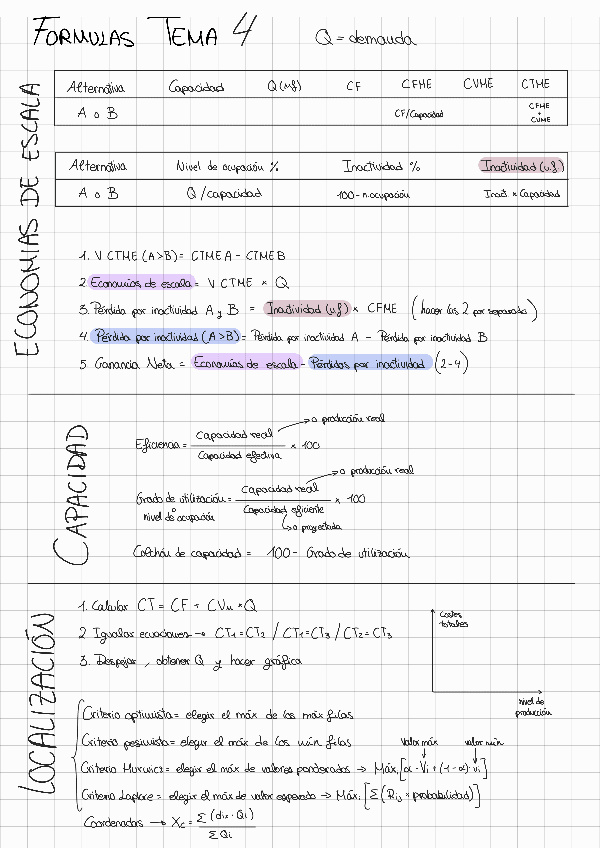 FORMULAS TEMA 4
Q = demanda
ECONOMIAS DE ESCALA
Alternativa Capacidad Q (u.f) CF CFME CVME CTME
A o B CF/Capacidad CFME + CVME
Alternativa Nivel de ocupación % Inactividad % Inactividad (u.f)
A o B Q/capacidad 100 - n.ocupación Inact × Capacidad
1. V CTME (A>B) = CTME A - CTME B
2 Economías de escala = V CTME × Q
3. Pérdida por inactividad A y B = Inactividad (u.f) × CFME (hacer las 2 por separado)
4. Pérdida por inactividad (A>B) = Pérdida por inactividad A - Pérdida por inactividad B
5 Ganancia Neta = Economías de escala - Pérdidas por inactividad (2-4)
CAPACIDAD
Eficiencia = Capacidad real / Capacidad efectiva × 100
→ o producción real
Grado de utilización = Capacidad real / Capacidad eficiente × 100
→ o producción real
o nivel de ocupación
→ o proyectada
Colchón de capacidad = 100 - Grado de utilización
LOCALIZACIÓN
1. Calcular CT = CF + CVu × Q
2 Igualar ecuaciones → CT1 = CT2 / CT1 = CT3 / CT2 = CT3
3. Despejar, obtener Q y hacer gráfica
Costes totales
nivel de producción
Criterio optimista = elegir el máx de los máx filas
Criterio pesimista = elegir el máx de los mín filas
valor máx valor mín
Criterio Hurwics = elegir el máx de valores ponderados → Máx¡ [α · Vi + (1-α) · vi]
Criterio Laplace = elegir el máx de valor esperado → Máx¡ [Σ (Rij × probabilidad)]
Coordenadas → Xc = Σ (dix · Qi) / Σ Qi